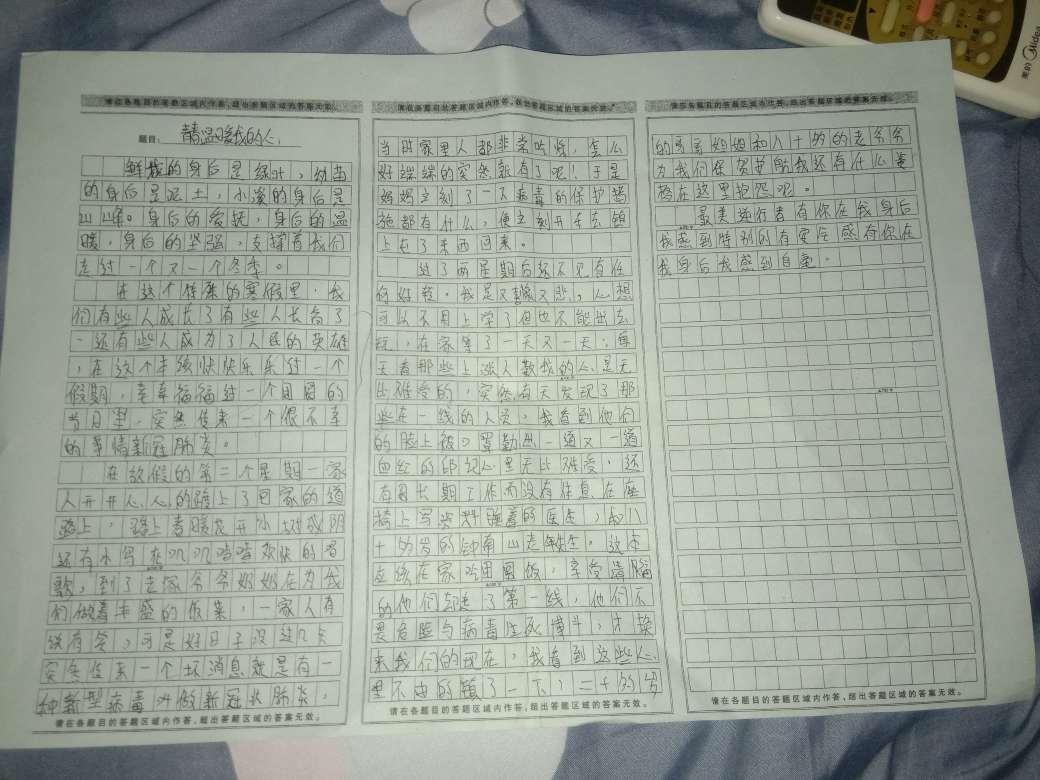 美的 Midea
请在各题目的答题区域内作答,超出答题区域的答案无效。
题目: 温暖我的人
鲜花的身后是绿叶,幼苗
的身后是泥土,小溪的身后是
山峰。身后的爱抚,身后的温
暖,身后的坚强,支撑着我们
走过一个又一个冬季。
在这个特殊的寒假里,我
们有些人成长了有些人长高了
,还有些人成为了人民的英雄
,在这个本该快快乐乐过一个
假期,幸幸福福过一个团圆的
节日里,突然传来一个很不幸
的事情新冠肺炎。
在放假的第二个星期一家
人开开心心的踏上了回家的道
路上,路上春暖花开
还有小鸟在叽叽喳喳欢快的唱
歌,到了老家爷爷奶奶在为我
们做着丰盛的饭菜,一家人有
说有笑,可是好日子没过几天
突然传来一个坏消息就是有一
种新型病毒叫做新冠状肺炎,
请在各题目的答题区域内作答,超出答题区域的答案无效。
请在各题目的答题区域内作答,超出答题区域的答案无效。
当时家里人都非常吃惊,怎么
好端端的突然就有了呢!于是
妈妈立刻了一下病毒的保护措
施都有什么,便立刻开车去镇
上屯了东西回来。
过了两星期后还不见有任
何好转,我是又又悲,心想
可以不用上学了但也不能出去
玩,在家等了一天又一天,每
天看那些上涨人数我的心是无
比难受的,突然有天发现了那
些在一线的人员,我看到他们
的脸上被口罩勒出一道又一道
血红的印记心里无比难受,还
有因长期工作而没有休息在座
椅上写资料睡着的医生,和八
十多岁的钟南山老先生。这本
应该在家吃团圆饭,享受清福
的他们却走了第一线,他们不
畏危险与病毒生死搏斗,才换
来我们的现在,我看到这些心
里不由的颤了一下,二十多岁
请在各题目的答题区域内作答,超出答题区域的答案无效。
请在各题目的答题区域内作答,超出答题区域的答案无效。
的哥哥姐姐和八十多的老爷爷
为我们保驾护航我还有什么资
格在这里抱怨呢。
最美逆行者有你在我身后
我感到特别的有安全感有你在
我身后我感到自豪。
请在各题目的答题区域内作答,超出答题区域的答案无效。